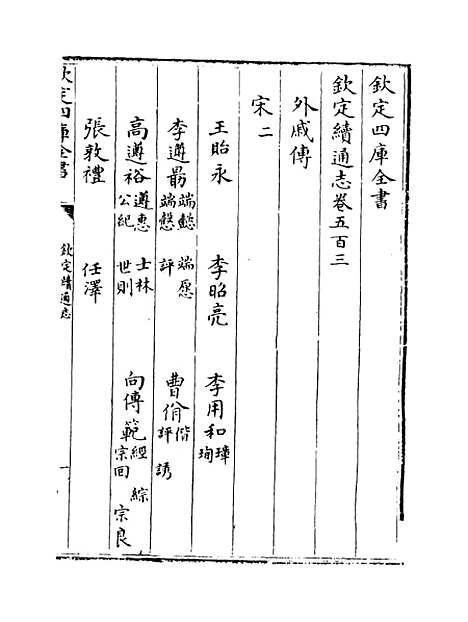 欽定四庫全書
欽定續通志卷五百三
外戚傳
宋二
王貽永 李昭亮 李用和 璋 珣
李遵勗 端懿 端愨 端愿 評 曹佾 偕 評 誘
高遵裕 遵惠 公紀 士林 世則 向傳範 經 綜 宗回 宗良
張敦禮 任澤
欽定四庫全書
欽定續通志
一